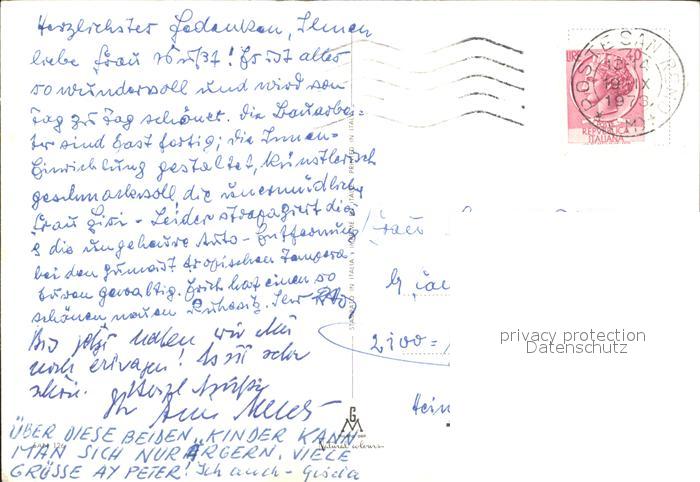 Herzlichstes Gedenken, Ihnen
liebe Frau ! Es ist alles
so wundervoll und wird von
Tag zu Tag schöner. Die Bauarbei-
ter sind fast fertig; die Innen-
Einrichtung gestaltet, künstlerisch
geschmackvoll, die unermüdliche
Frau Gisi - Leider strapaziert die
die ungeheure Auto-Entfernung
bei den zumeist tropischen Tempera-
turen gewaltig. Erich hat einen so
schönen neuen Ruhesitz. Ihr
Bis jetzt haben wir ihn
noch ertragen! Es ist sehr
schön. Herzl Grüße
Ihr
ÜBER DIESE BEIDEN „KINDER KANN
MAN SICH NUR ÄRGERN. VIELE
GRÜSSE AY PETER! Ich auch - Gisela
POSTE SAN
19 IX
1973
LIRE 40
REPVBBLICA
ITALIANA
Frau
2100=
Hein
PRINTED IN ITALY
G M
Natural colours
privacy protection
Datenschutz